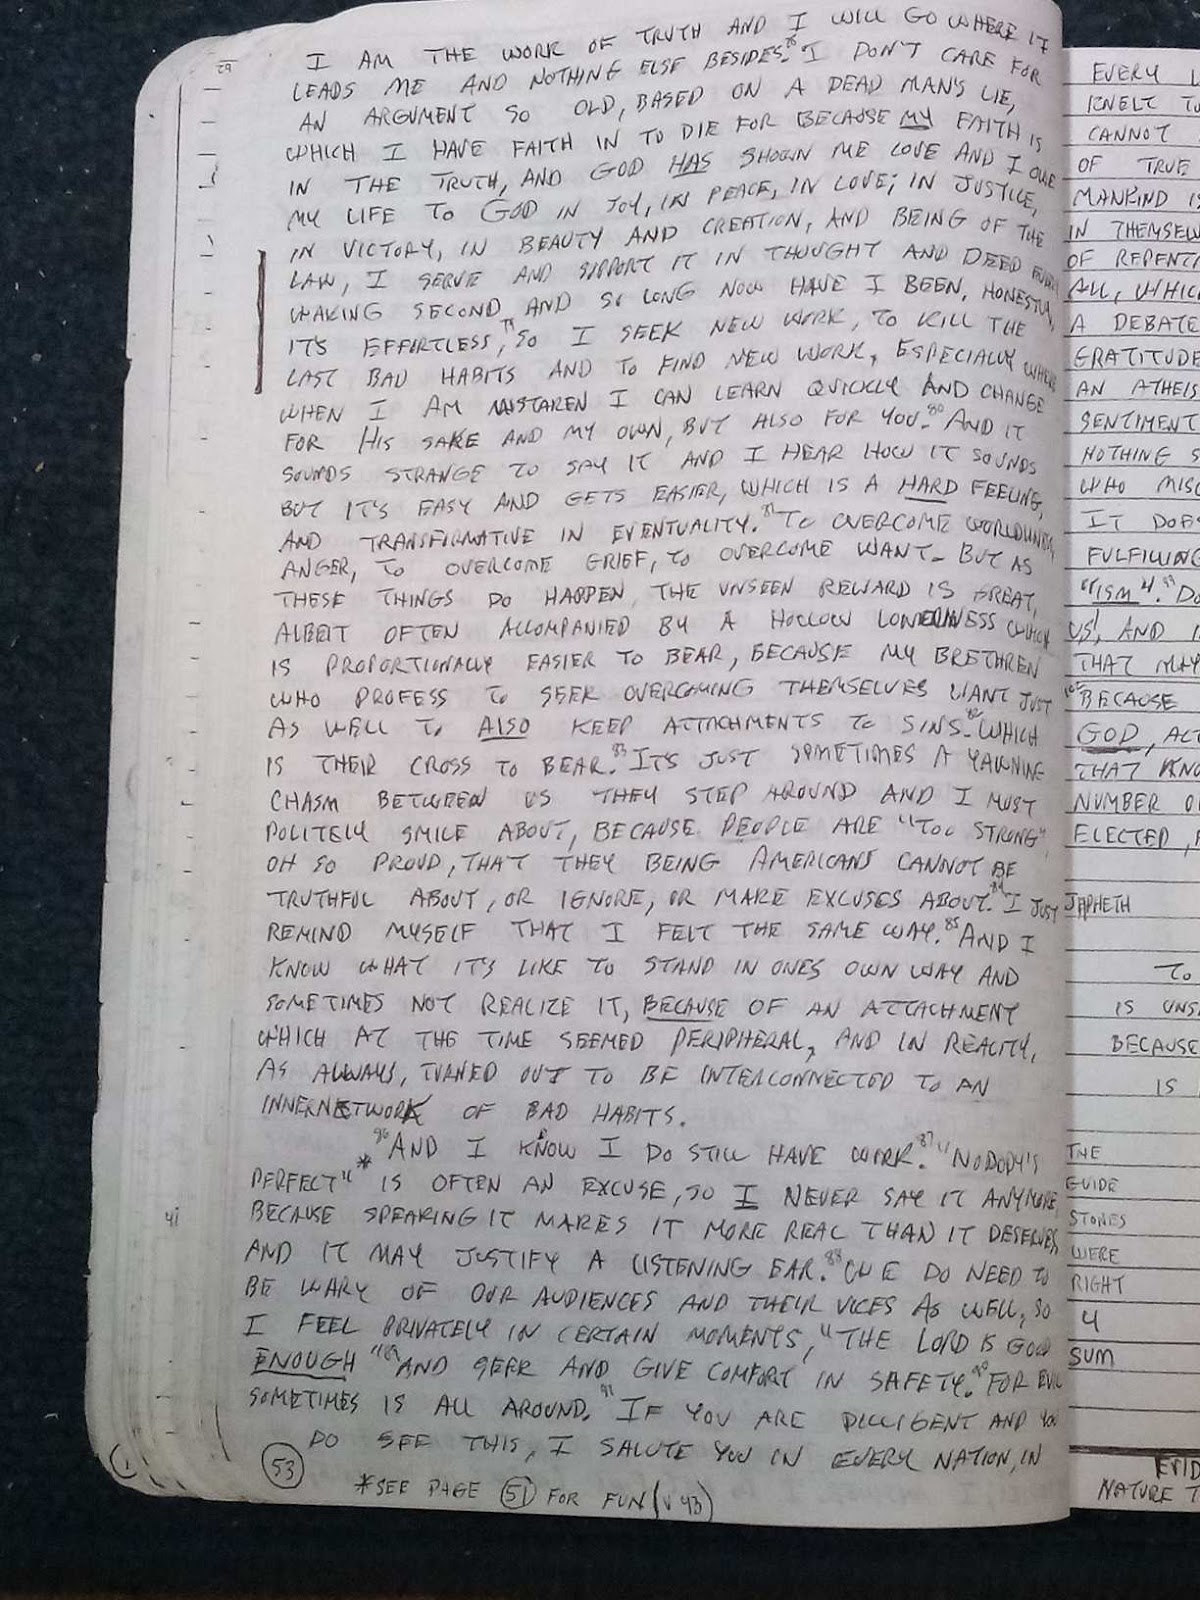 I AM THE WORK OF TRUTH AND I WILL GO WHERE IT
LEADS ME AND NOTHING ELSE BESIDES. I DON'T CARE FOR
AN ARGUMENT SO OLD, BASED ON A DEAD MAN'S LIE,
WHICH I HAVE FAITH IN TO DIE FOR BECAUSE MY FAITH IS
IN THE TRUTH, AND GOD HAS SHOWN ME LOVE AND I OWE
MY LIFE TO GOD IN JOY, IN PEACE, IN LOVE; IN JUSTICE,
IN VICTORY, IN BEAUTY AND CREATION, AND BEING OF THE
LAW, I SERVE AND SUPPORT IT IN THOUGHT AND DEED EVERY
WAKING SECOND AND SO LONG NOW HAVE I BEEN, HONESTLY,
IT'S EFFORTLESS, 79 SO I SEEK NEW WORK, TO KILL THE
LAST BAD HABITS AND TO FIND NEW WORK, ESPECIALLY WHERE
WHEN I AM MISTAKEN I CAN LEARN QUICKLY AND CHANGE
FOR HIS SAKE AND MY OWN, BUT ALSO FOR YOU. 80 AND IT
SOUNDS STRANGE TO SAY IT AND I HEAR HOW IT SOUNDS
BUT IT'S EASY AND GETS EASIER, WHICH IS A HARD FEELING,
AND TRANSFORMATIVE IN EVENTUALITY. 81 TO OVERCOME WORLDLINESS,
ANGER, TO OVERCOME GRIEF, TO OVERCOME WANT - BUT AS
THESE THINGS DO HAPPEN, THE UNSEEN REWARD IS GREAT,
ALBEIT OFTEN ACCOMPANIED BY A HOLLOW LONELINESS WHICH
IS PROPORTIONALLY EASIER TO BEAR, BECAUSE MY BRETHREN
WHO PROFESS TO SEEK OVERCOMING THEMSELVES WANT JUST
AS WELL TO ALSO KEEP ATTACHMENTS TO SINS. 82 WHICH
IS THEIR CROSS TO BEAR. 83 IT'S JUST SOMETIMES A YAWNING
CHASM BETWEEN US THEY STEP AROUND AND I MUST
POLITELY SMILE ABOUT, BECAUSE PEOPLE ARE "TOO STRONG"
OH SO PROUD, THAT THEY BEING AMERICANS CANNOT BE
TRUTHFUL ABOUT, OR IGNORE, OR MAKE EXCUSES ABOUT. 84 I JUST
REMIND MYSELF THAT I FELT THE SAME WAY. 85 AND I
KNOW WHAT IT'S LIKE TO STAND IN ONES OWN WAY AND
SOMETIMES NOT REALIZE IT, BECAUSE OF AN ATTACHMENT
WHICH AT THE TIME SEEMED PERIPHERAL, AND IN REALITY,
AS ALWAYS, TURNED OUT TO BE INTERCONNECTED TO AN
INNERNETWORK OF BAD HABITS.
86 AND I KNOW I DO STILL HAVE WORK. 87 "NOBODY'S
PERFECT"* IS OFTEN AN EXCUSE, SO I NEVER SAY IT ANYMORE,
BECAUSE SPEAKING IT MAKES IT MORE REAL THAN IT DESERVES,
AND IT MAY JUSTIFY A LISTENING EAR. 88 WE DO NEED TO
BE WARY OF OUR AUDIENCES AND THEIR VICES AS WELL, SO
I FEEL PRIVATELY IN CERTAIN MOMENTS, "THE LORD IS GOOD
ENOUGH" 89 AND SEEK AND GIVE COMFORT IN SAFETY. 90 FOR EVIL
SOMETIMES IS ALL AROUND. 91 IF YOU ARE DILLIGENT AND YOU
DO SEE THIS, I SALUTE YOU IN EVERY NATION, IN
53
*SEE PAGE 51 FOR FUN (V 43)
EVERY
KNELT TO
CANNOT
OF TRUE
MANKIND IS
IN THEMSELV
OF REPENT
ALL, WHICH
A DEBATE
GRATITUDE
AN ATHEIS
SENTIMENT
NOTHING S
WHO MISC
IT DOES
FULFILLING
"ISM". 99 DO
US, AND
THAT MAY
BECAUSE
GOD, ACT
THAT KNO
NUMBER O
ELECTED,
JAPHETH
TO
IS UNS
BECAUSE
IS
THE
GUIDE
STONES
WERE
RIGHT
4
SUM
EVID
NATURE T